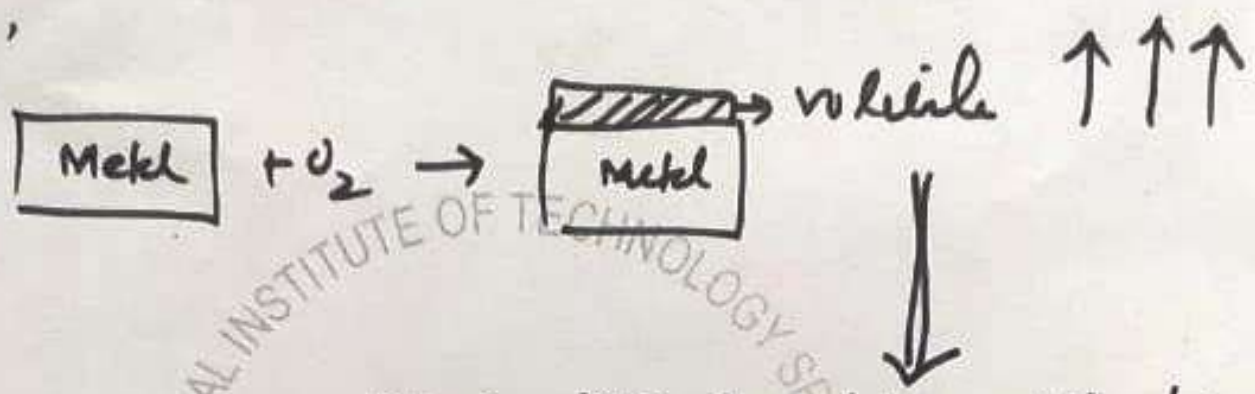 Metal + O2 → Metal → volatile ↑ ↑ ↑
AL INSTITUTE OF TECHNOLOGY SR